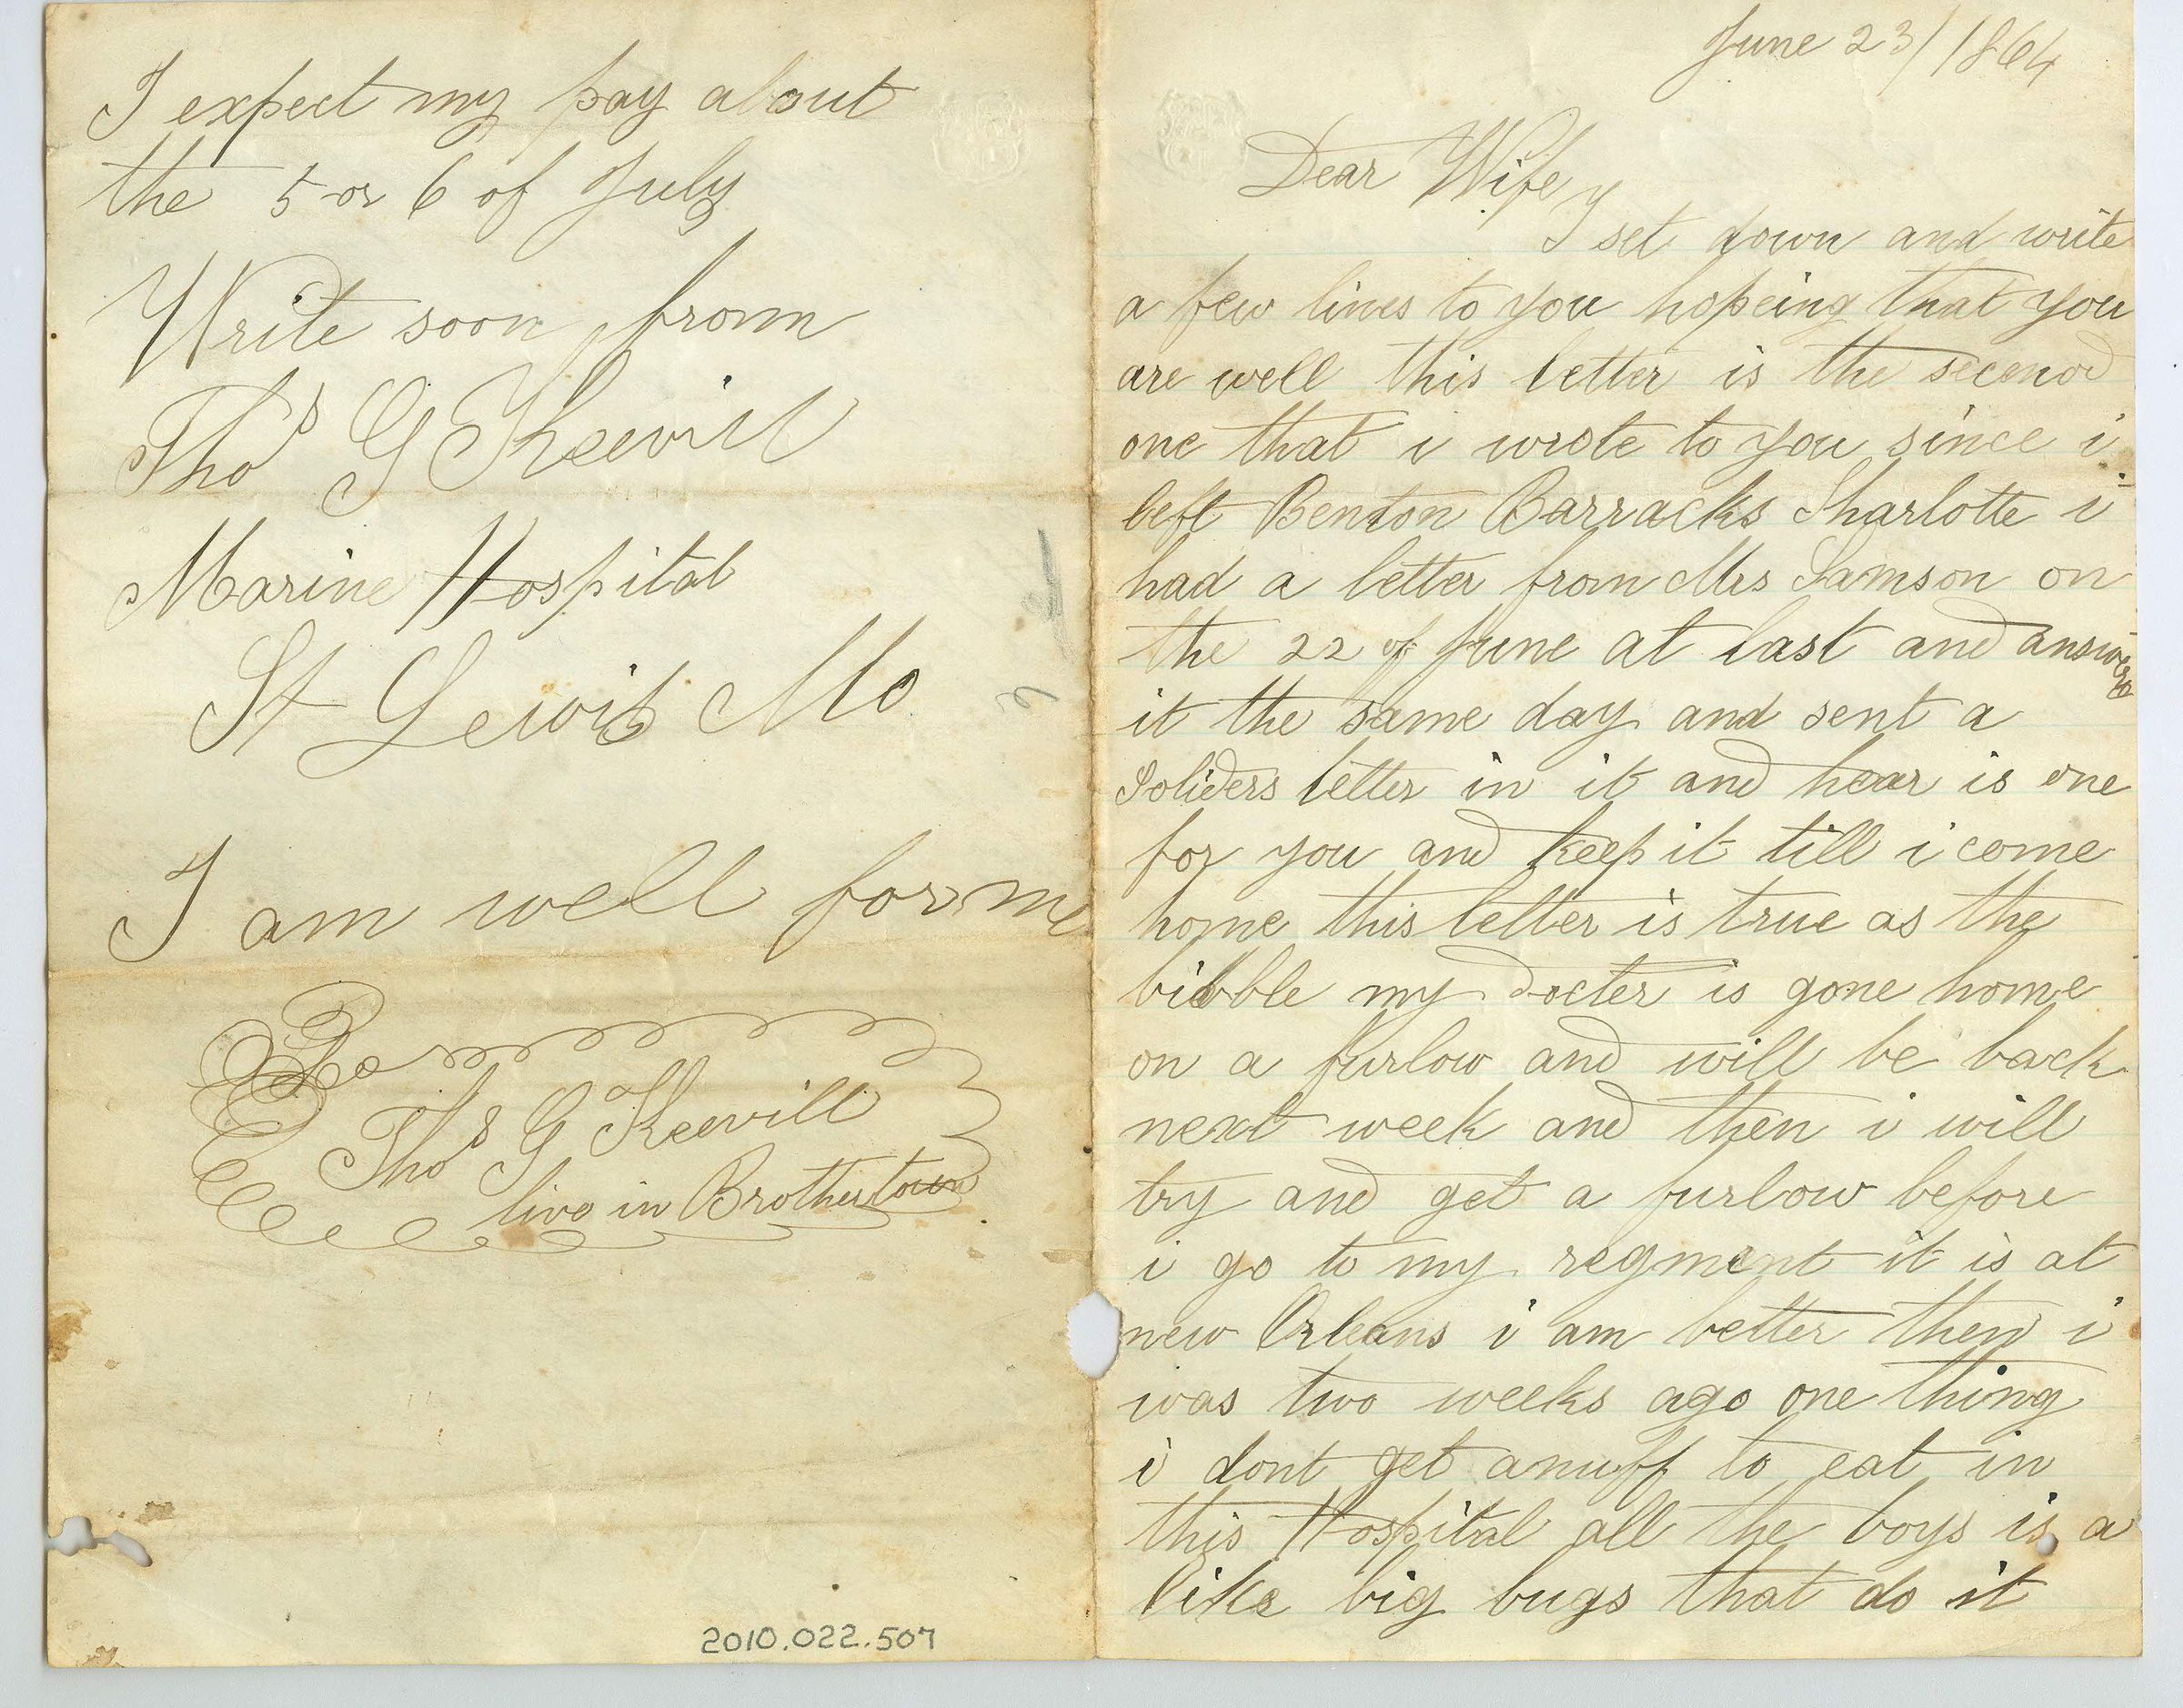 June 23/1864
Dear Wife
I set down and write
a few lines to you hopeing that you
are well this letter is the secenod
one that i wrote to you since i
left Benton Barracks Sharlotte i
had a letter from Mrs Samson on
the 22 of June at last and answerd
it the same day and sent a
Soliders letter in it and hear is one
for you and keep it till i come
home this letter is true as the
bibble my docter is gone home
on a furlow and will be back
next week and then i will
try and get a furlow before
i go to my regment it is at
new Orleans i am better then i
was two weeks ago one thing
i dont get anuff to eat in
this Hospital all the boys is a
like big bugs that do it
I expect my pay about
the 5 or 6 of July
Write soon from
Thos G Keevill
Marine Hospital
St Lewis Mo
I am well for me
Thos G Keevill
live in Brothertown
2010.022.507